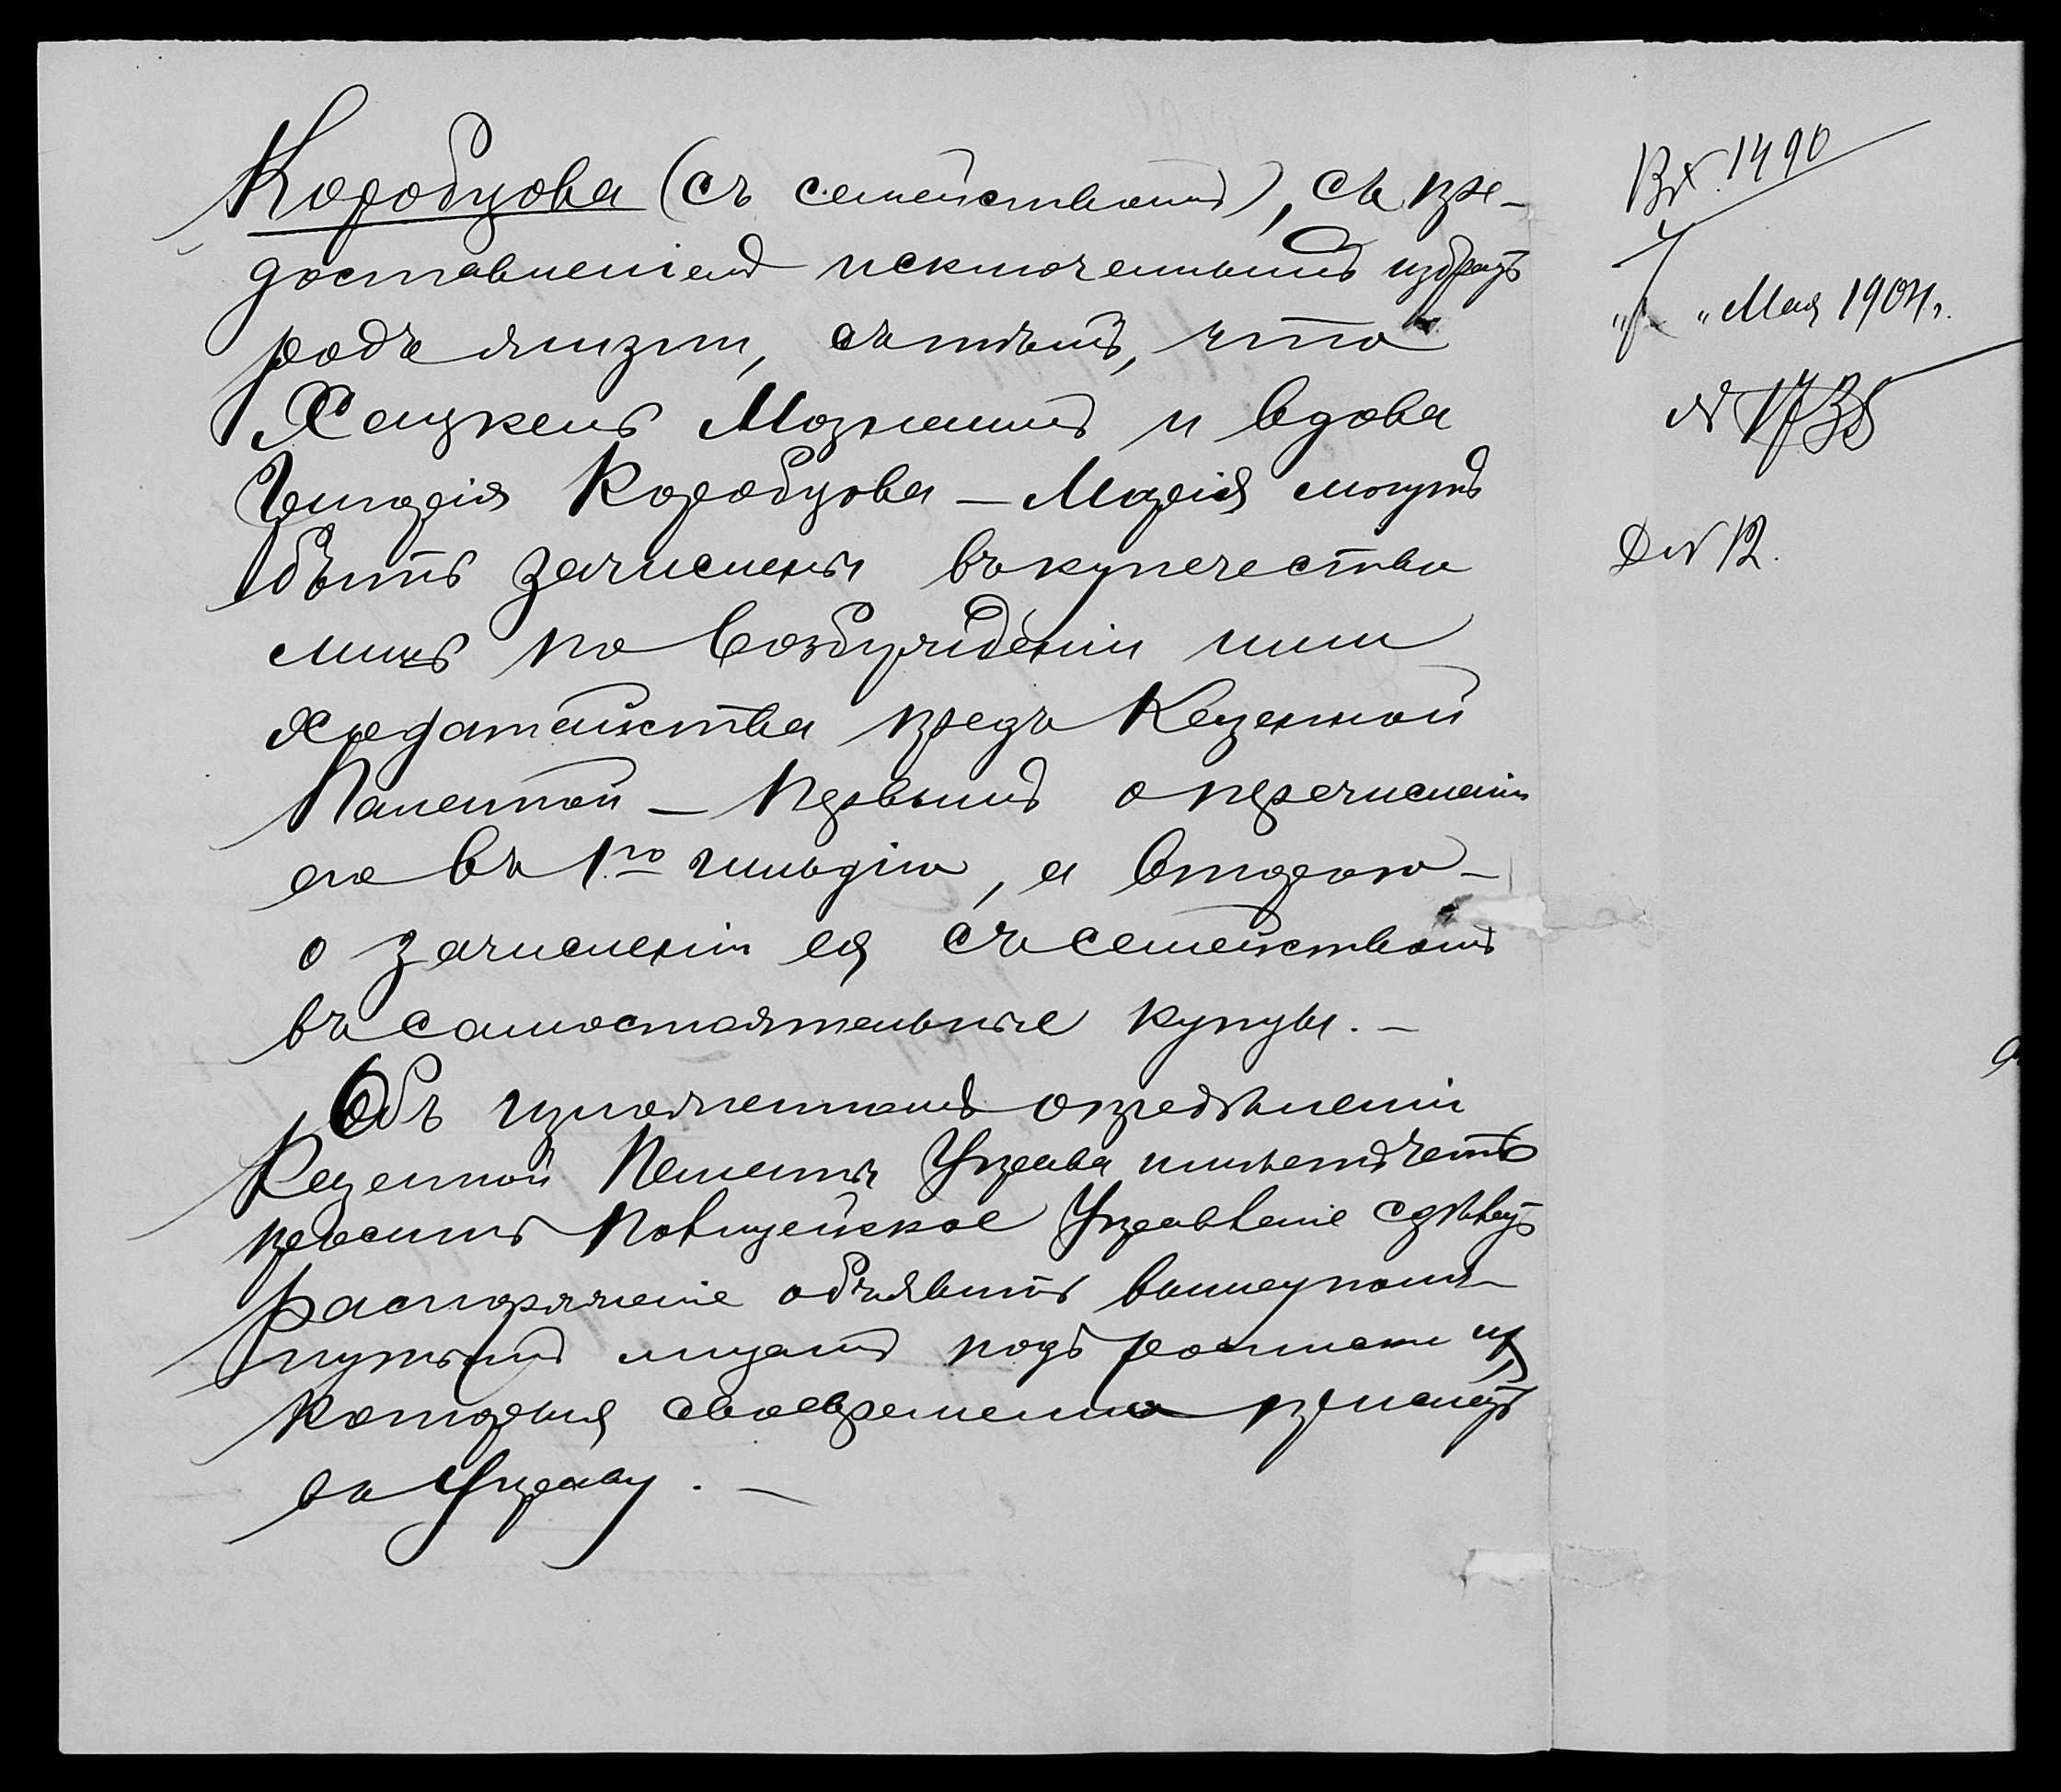 Коробцова (съ семействомъ), съ пре-
доставленіемъ исключеннымъ избрать
родъ жизни, съ тѣмъ, что
Хацкель Мозмашъ и вдова
Григорія Коробцова — Марія могутъ
быть зачислены въ купечество
лишь по возбужденіи ими
ходатайства предъ Казенной
Палатой — первымъ о перечисленіи
его въ 1ю гильдію, а второю —
о зачисленіи ея съ семействомъ
въ самостоятельные купцы. —
Объ изложенномъ опредѣленіи
Казенной Палаты Управа имѣетъ честь
просить Полицейское Управленіе сдѣлать
распоряженіе объявить вышеупомя-
нутымъ лицамъ подъ росписки ихъ,
которыя своевременно прислать
въ Управу. —
Вх. 1490
" " Мая 1904 г.
№ 1738
Д № 12.